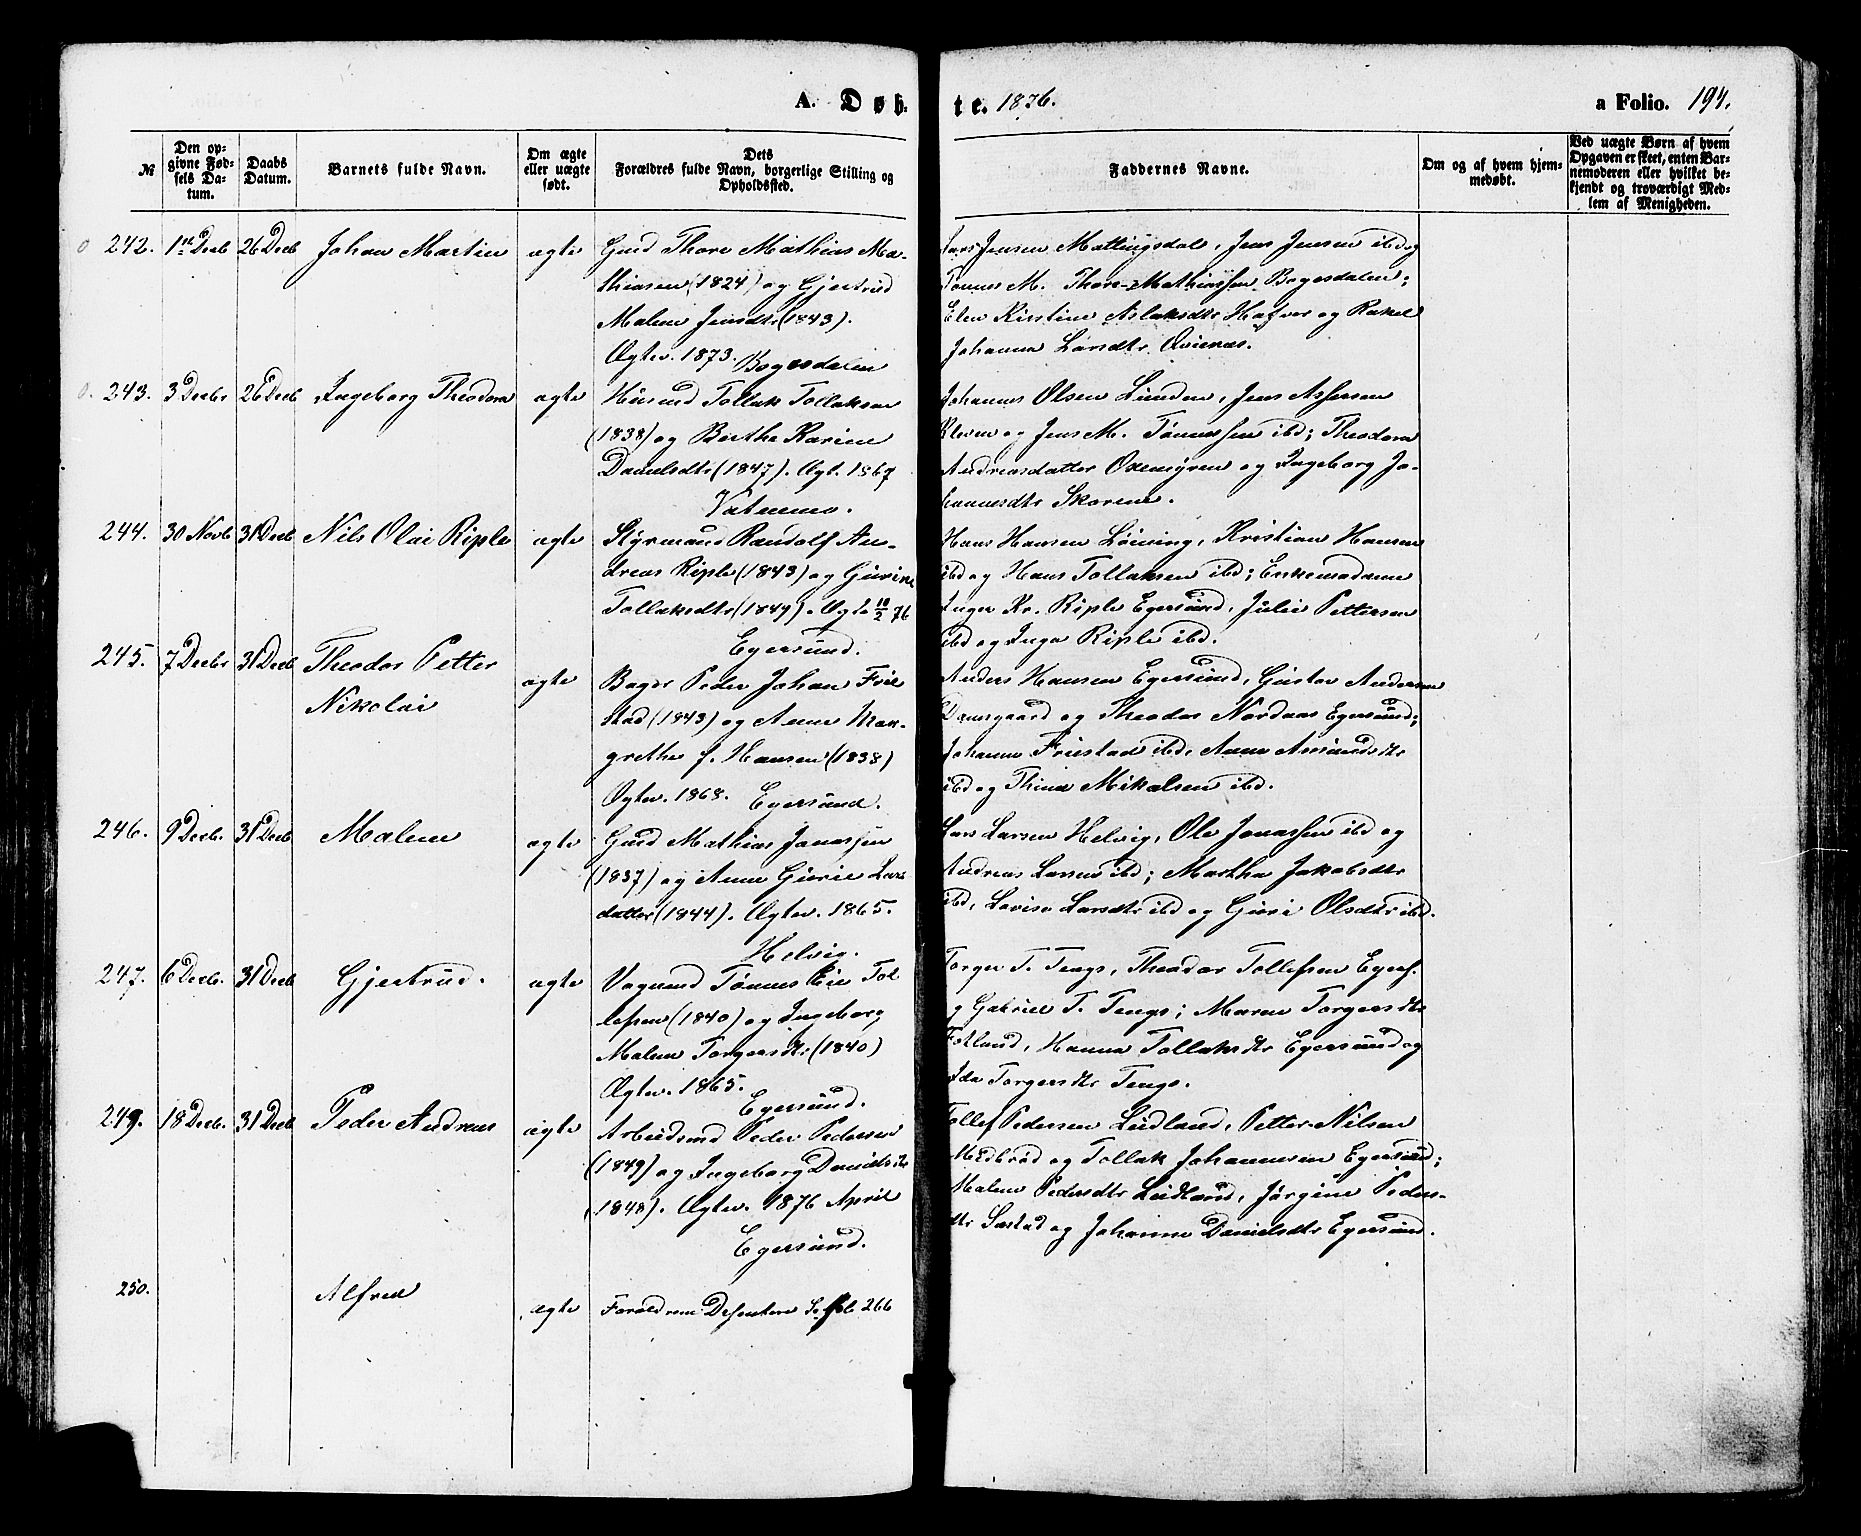 A. Døb-
te. 1876.
a Folio. 194.
№
Den op-
givne Fød-
sels Da-
tum.
Daabs
Datum.
Barnets fulde Navn.
Om ægte
eller uægte
født.
Dets
Forældres fulde Navn, borgerlige Stilling og
Opholdssted.
Faddernes Navne.
Om og af hvem hjem-
medøbt.
Ved uægte Børn af hvem
Opgaven er skeet, enten Bar-
nemoderen eller hvilket be-
kjendt og troværdigt Med-
lem af Menigheden.
242. 1ste Decb 26 Decb Johan Martin ægte
Gmd Thore Mathias Ma-
thiasen (1824) og Gjertrud
Malene Jensdtr (1843).
Ægtev. 1873. Bogesdalen
Lars Jensen Mattingsdal, Jens Jensen ibd og
Tønnes M. Thore-Mathiassen Bogesdalen;
Elen Kirstine Aslaksdtr Hafsø og Rakel
Johanna Larsdtr
243. 3 Decbr 26 Decb Ingeborg Theodora ægte
Huusmd Tollak Tollaksen
(1838) og Berthe Karine
Danielsdtr (1847). Ægt. 1867
Vatnemo.
Johannes Olsen Lunden, Jens Assersen
Kleven og Jens M. Tønnessen ibd; Theodora
Andreasdatter og Ingeborg Jo-
hannesdtr Skarene.
244. 30 Novb 31 Decb Nils Olai Riple ægte
Styrmand Randolf An-
dreas Riple (1843) og Gurine
Tollaksdtr (1849). Ægte 10/2 76
Egersund.
Hans Hansen Løining, Kristian Hansen
ibd og Hans Tollaksen ibd; Enkemadame
Inger Kr. Riple Egersund, Julie Pettersen
ibd og Inga Riple ibd.
245. 7 Decbr 31 Decb Theodor Petter
Nikolai
ægte
Bager Peder Johan Frie
stad (1843) og Anne Mar-
grethe f. Hansen (1838)
Ægtev. 1868. Egersund.
Anders Hansen Egersund, Gustav Andersen
Damsgaard og Theodor Nordaas Egersund;
Johanne Friestad ibd, Anne Amundsdtr
ibd og Thine Mikalsen ibd.
246. 9 Decb. 31 Decb Malene ægte
Gmd Mathias Jonassen
(1837) og Anne Gurie Lars
datter (1844). Ægtev. 1865.
Helvig.
Lars Larsen Helvig, Ole Jonassen ibd og
Andreas Larsen ibd; Martha Jakobsdtr
ibd, Lovise Larsdtr ibd og Guri Olsdtr ibd.
247. 6 Decb. 31 Decb Gjertrud. ægte
Vognmd Tønnes Eie Tol
lefsen (1840) og Ingeborg
Malene Torgersdtr (1840)
Ægtev. 1865.
Egersund.
Torger T. Tengs, Theodor Tollefsen Egers.
og Gabriel T. Tengs; Maren Torgersdtr
Fotland, Hanna Tollaksdtr Egersund og
Ida Torgersdtr Tengs.
249. 18 Decb. 31 Decb Peder Andreas ægte
Arbeidsmd Peder Pedersen
(1849) og Ingeborg Danielsdtr
(1848). Ægtev. 1876 April
Egersund.
Tollef Pedersen Leidland, Petter Nilsen
Midbrød og Tollak Johannesen Egersund;
Malene Pedersdtr Leidland, Jørgine Peders-
dtr og Johanne Danielsdtr Egersund.
250. Alfred
ægte Forældrene Dissentere Se fol 266